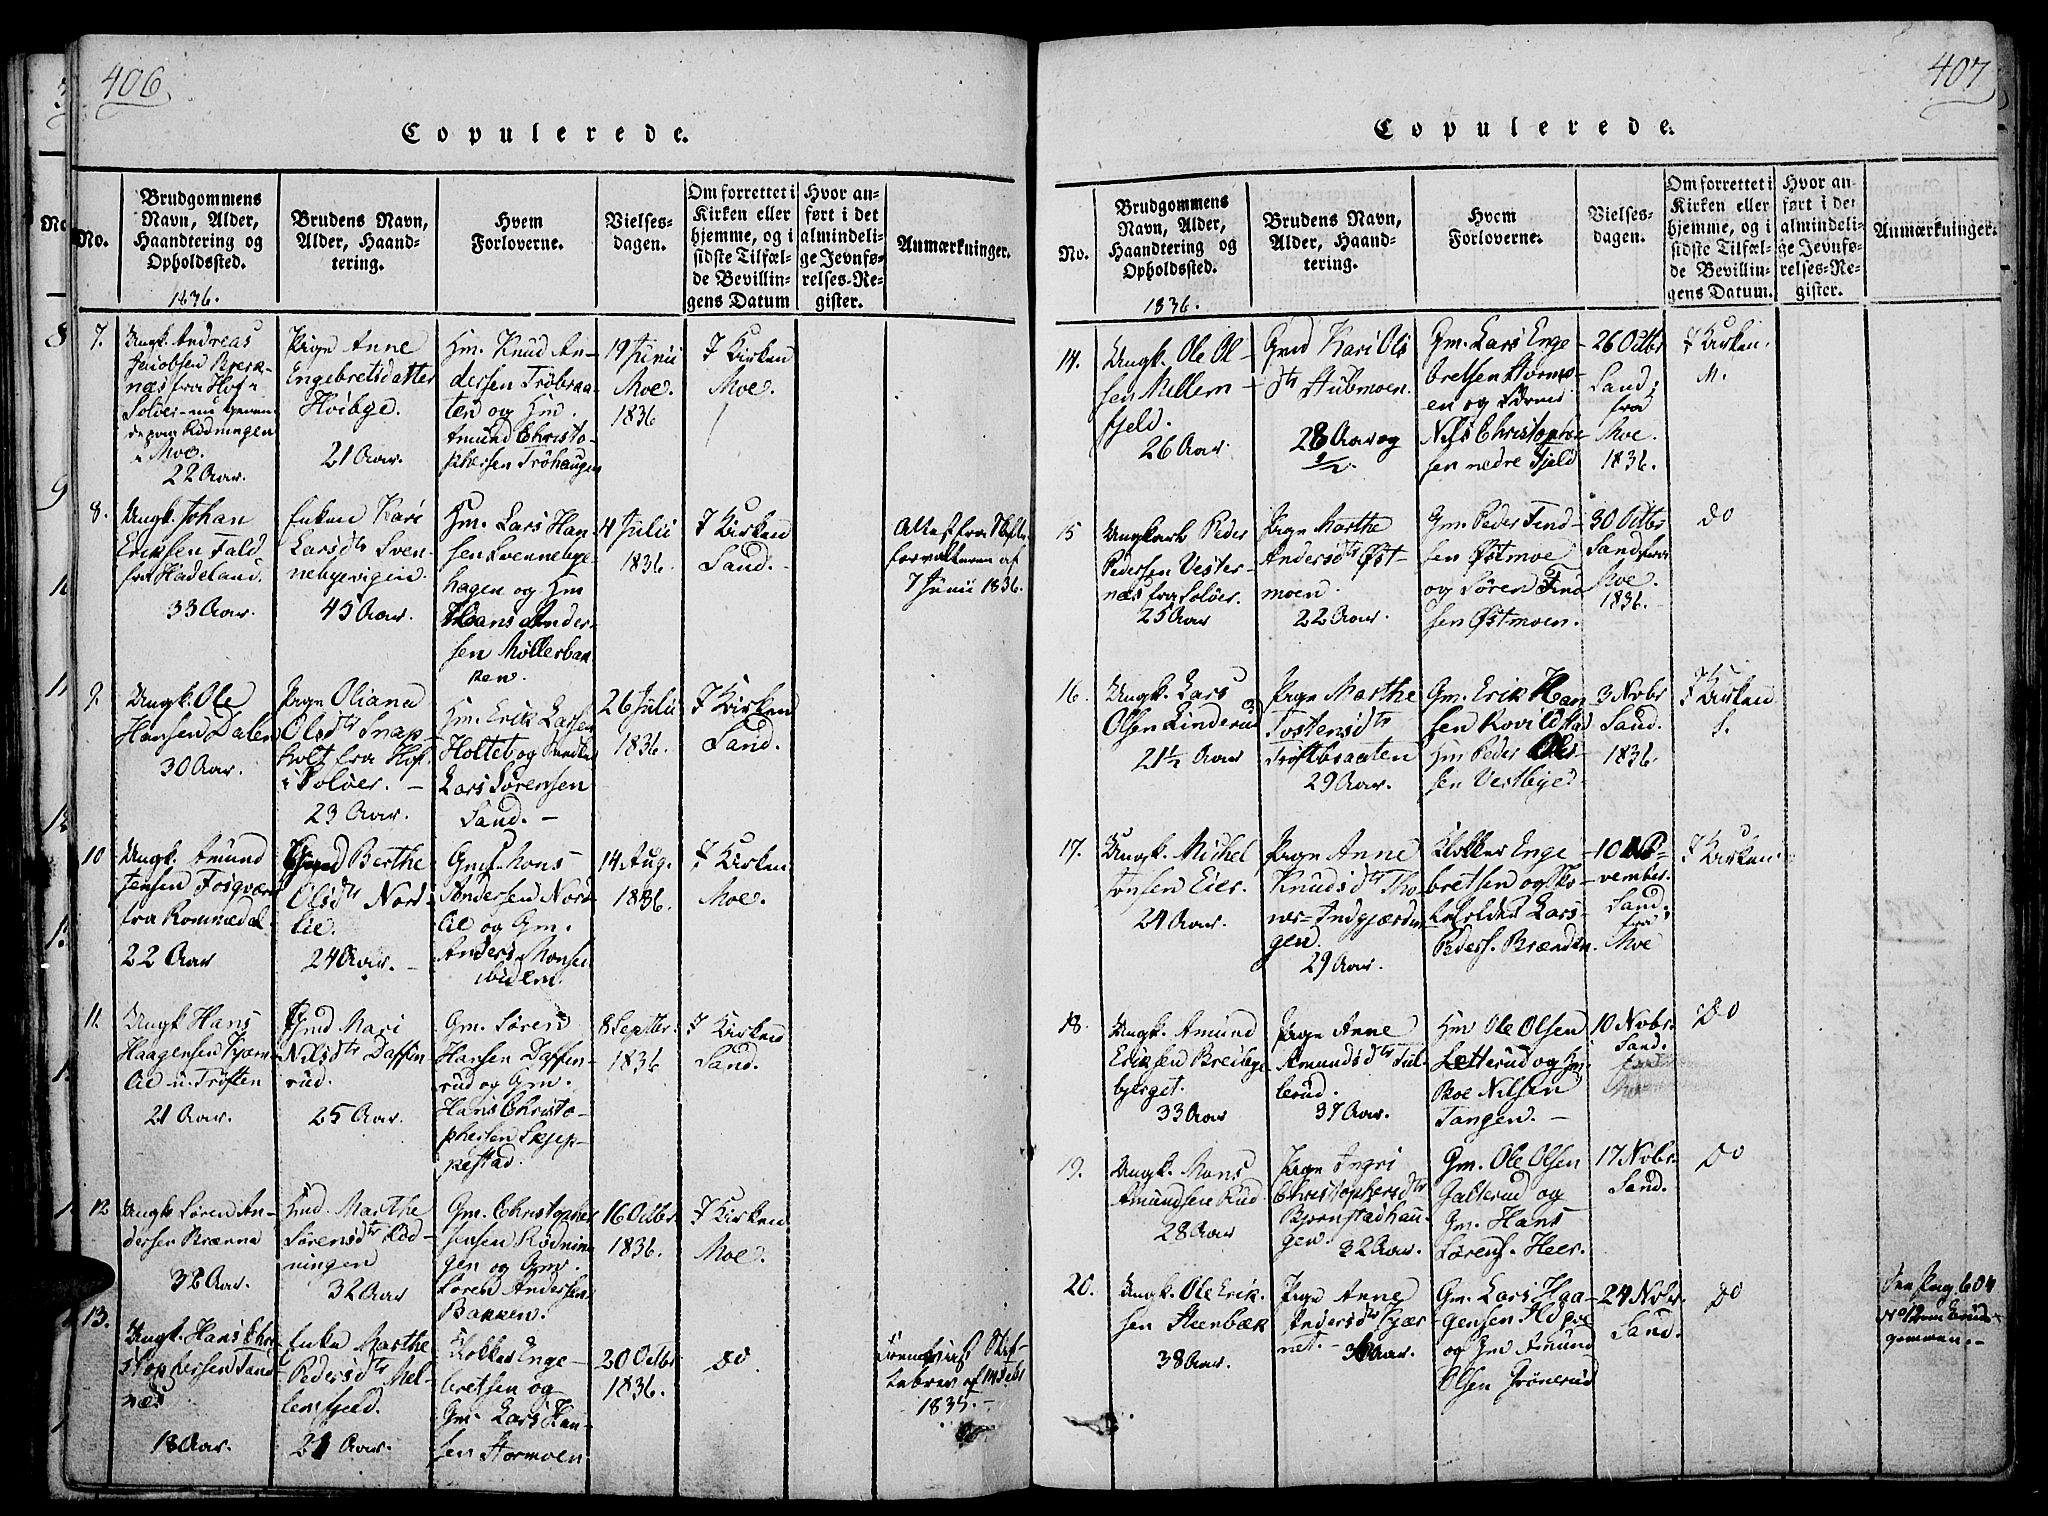 406
Copulerede.
No.
Brudgommens
Navn, Alder,
Haandtering og
Opholdssted.
1836.
Brudens Navn,
Alder, Haand-
tering.
Hvem
Forloverne.
Vielses-
dagen.
Om forrettet i
Kirken eller
hjemme, og i
sidste Tilfæl-
de Bevillin-
gens Datum
Hvor an-
ført i det
almindeli-
ge Jevnfø-
relses-Re-
gister.
Anmærkninger.
7.
Ungk. Andreas
Jacobsen
næs fra Hof i
Soløer
Rødningen
i Moe.
22 Aar.
Pige Anne
Engebretsdatter
Hvibye.
21 Aar.
Gm. Knud An-
dersen Trøbraa-
ten og Gm.
Amund Christo-
phersen Trøhaugen
19 Junii
Moe.
1836
I Kirken
Moe.
8.
Ungk. Johan
Eriksen Fald
fra Hadeland.
33 Aar.
Enken Kari
Larsdtr Sven-
nebyevigen.
45 Aar.
Gm. Lars Han-
sen Svennebye-
hagen og Gm
Hans Ander-
sen Møllerbak
ken.
4 Julii
1836.
I Kirken
Sand.
Attest fra Skifte
forvalteren af
7 Junii 1836.
9.
Ungk. Ole
Hansen Dalen
30 Aar.
Pige Oliana
Olsdtr Snap-
holt fra Hof
i Soløer. -
23 Aar.
Gm. Erik Larsen
Holteb og
Lars Sørensen
Sand. -
26 Julii
1836.
I Kirken
Sand.
10
Ungk. Amund
Jensen
fra Rommedal
22 Aar
Berthe
Olsdtr Nord-
lie.
24 Aar. -
Gm. Mons
Andersen Nord
lie og Gm.
Anders Monsen
ibidem.
14 Aug.
1836.
I Kirken
Moe.
11.
Ungk Hans
Haagensen Kjærn
lie u. Trøften
21 Aar.
Gmd Mari
Nilsdtr Daffin
rud.
25 Aar.
Gm. Søren
Hansen Daffin-
rud og Gm.
Hans Christo-
phersen Skjep-
pestad.
8 Septbr.
1836
I Kirken
Sand.
12
Ungk Søren An-
dersen Brænna
32 Aar.
Gmd Marthe
Sørensdtr Rød-
ningen
32 Aar
Gm. Christopher
Jensen Rødnin
gen og Gm.
Søren Andersen
Bakken.
16 Octbr.
1836.
I Kirken
Moe.
13.
Ungk. Hans Chri
stophersen Sand
næs
18 Aar.
Enke Marthe
Pedersdtr Mel-
lemfjeld.
21 Aar.
Klokker Enge-
bretsen og
Gm. Lars Han-
sen Stormoen.
20 Octbr
1836.
do.
Skif-
tebrev af
1835. -
407
Copulerede.
No.
Brudgommens
Navn, Alder,
Haandtering og
Opholdssted.
1836.
Brudens Navn,
Alder, Haand-
tering.
Hvem
Forloverne.
Vielses-
dagen.
Om forrettet i
Kirken eller
hjemme, og i
sidste Tilfæl-
de Bevillin-
gens Datum.
Hvor an-
ført i det
almindeli-
ge Jevnfø-
relses-Re-
gister.
Anmærkninger.
14.
Ungk. Ole Ol-
sen Mellem-
fjeld.
26 Aar
Gmd Kari Ols
dtr Stubmoen.
28 Aar og
1/2.
Gm. Lars Enge-
bretsen Stormo-
en og
Nils Christopher
sen nedre Fjeld
26 Octbr
Sand,
fra
Moe.
1836.
I Kirken.
M.
15
Ungkarl Peder
Pedersen Vester-
næs fra Soløer.
25 Aar
Pige Marthe
Andersdtr Øst-
moen.
22 Aar.
Gm. Peder Find-
sen Østmoe
og Søren Find
sen Østmoen.
30 Octbr
Sand fra
Moe.
1836.
do
16.
Ungk. Lars
Olsen Linderud
21½ Aar
Pige Marthe
Tostensdtr
Trøftbraaten
29 Aar.
Gm. Erik Han
sen Rovildstad
Gm Peder Ol-
sen Vestbye
3 Novbr
Sand.
1836.
I Kirken
S.
17.
Ungk. Michel
Jonsen Eier.
24 Aar.
Pige Anne
Knudsdtr Tho-
ner-Indgjærdin-
gen.
29 Aar.
Klokker Enge-
bretsen og
Lars
Peders. Brænden
10 No-
vember.
Sand.
fra
Moe
I Kirken
18.
Ungk. Amund
Eriksen Breibye-
bjerget.
33 Aar
Pige Anne
Amundsdtr Tul-
lerud.
37 Aar.
Gm Ole Olsen
Letterud og Gm.
Roe Nilsen
Tangen. -
10 Novbr.
Sand.
Do
19.
Ungk. Mons
Amundsen Rud
28 Aar
Pige Ingri
Christophersdtr
Bjørnstadhau-
gen. 32 Aar.
Gm. Ole Olsen
Galterud og
Gm. Hans
Sørens. Heer.
17 Novbr
Sand.
Do
20.
Ungk. Ole Erik-
sen Steenbæk
38 Aar.
Pige Anne
Andersdtr Kjær-
net. - 36 Aar.
Gm. Lars Haa-
gensen
og Gm Amund
Olsen Grønerud
24 Novbr
Sand.
Do
See Pag 604
No 12 om Brud-
gommen. -